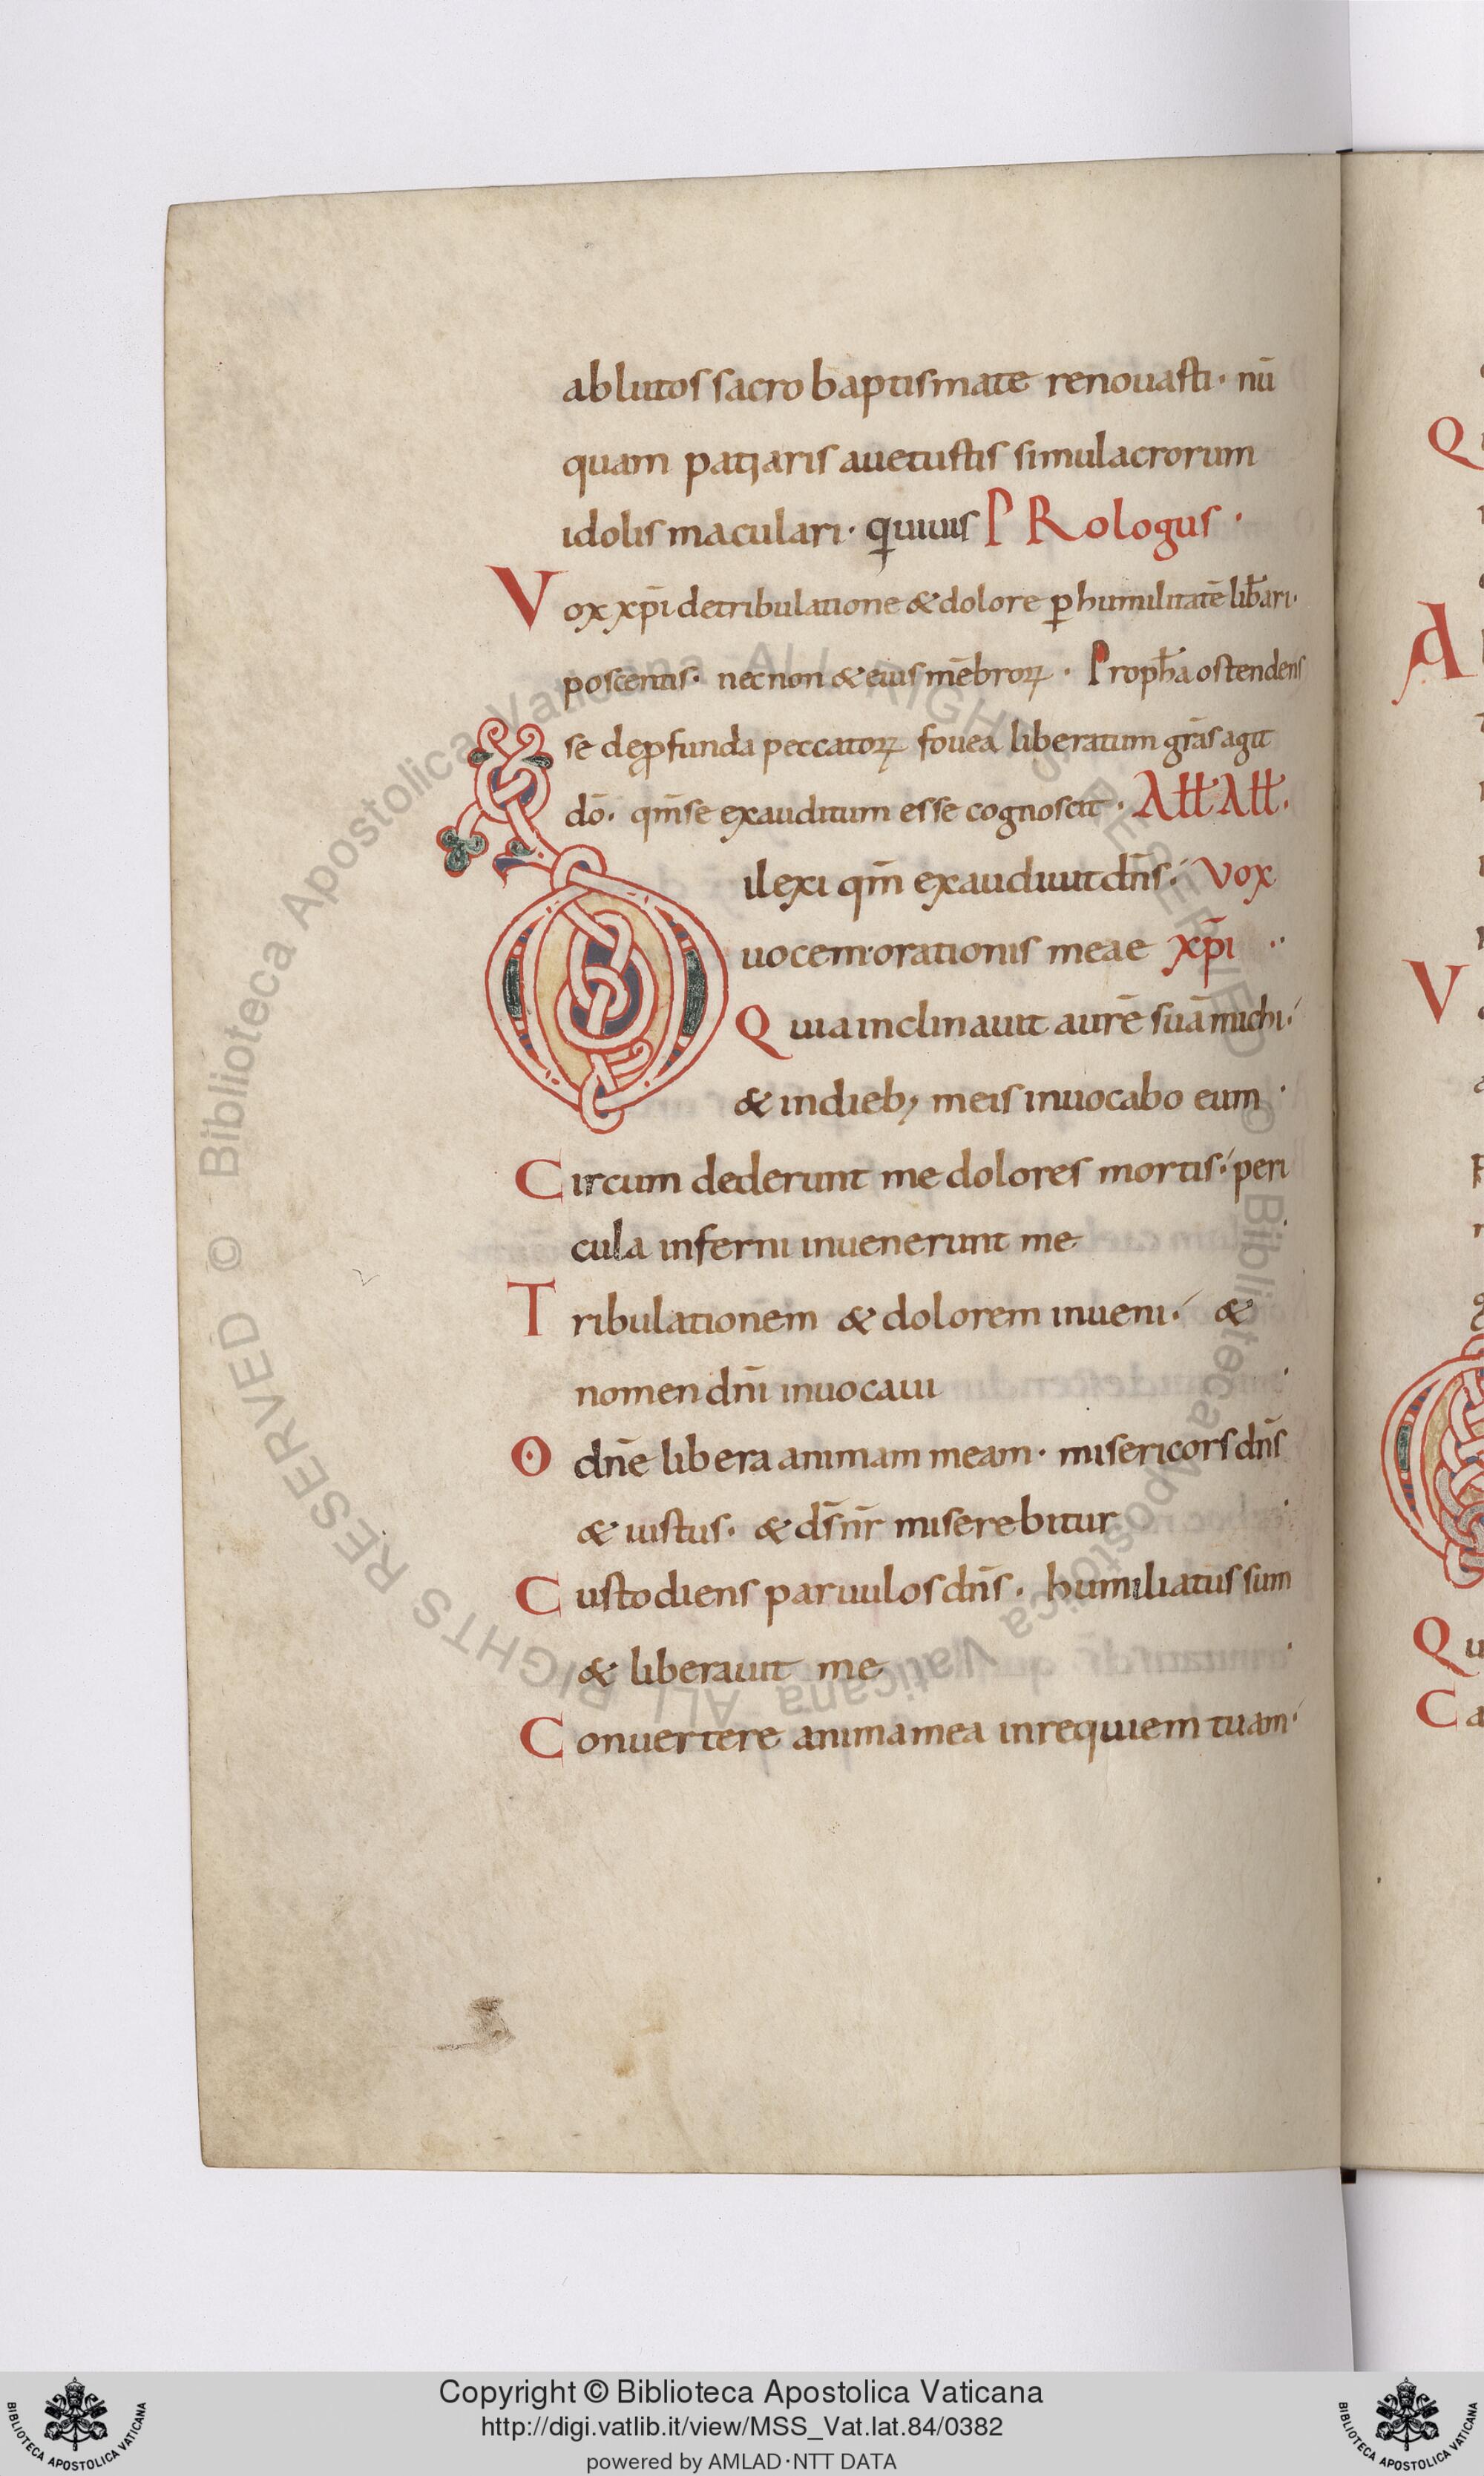 ablutos sacro baptismate renouasti · nū
quam patiaris auetustis simulacrorum
idolis maculari · quiuis PRologus ·
Vox xp̄i detribulatione & dolore ꝑ humilitatē lib̄ari·
poscentis · necnon & eius mēbroꝝ · Proph̄a ostendens
se deꝓfunda peccatoꝝ fouea liberatum grās agit
dō · qm̄ se exauditum esse cognoscit · Aꝉꝉ Aꝉꝉ ·
Dilexi qm̄ exaudiuit dn̄s · Vox
uocem·orationis meae xp̄i ··
Quia inclinauit aurē suā michi ·
& indieb; meis inuocabo eum ·
Circum dederunt me dolores mortis · peri
cula inferni inuenerunt me ·
Tribulationem & dolorem inueni · &
nomen dn̄i inuocaui ·
O dn̄e libera animam meam · misericors dn̄s
& iustus · & ds̄ nr̄ miserebitur ·
Custodiens paruulos dn̄s · humiliatus sum
& liberauit me ·
Conuertere anima mea inrequiem tuam ·
Q
A
V
Qu
Ca
© Biblioteca Apostolica Vaticana ALL RIGHTS RESERVED © Biblioteca Apostolica Vaticana ALL RIGHTS RESERVED
Copyright © Biblioteca Apostolica Vaticana
http://digi.vatlib.it/view/MSS_Vat.lat.84/0382
powered by AMLAD·NTT DATA
BIBLIOTECA APOSTOLICA VATICANA
BIBLIOTECA APOSTOLICA VATICANA